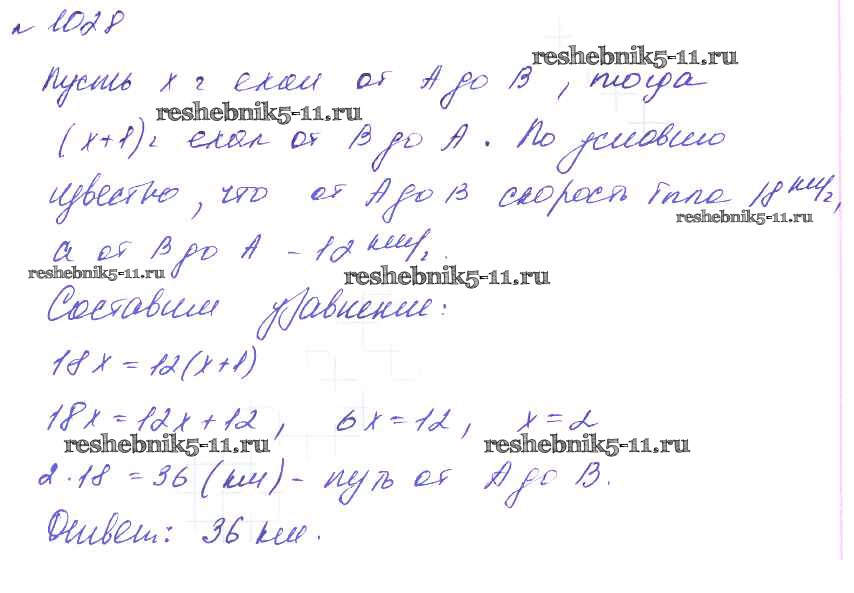 № 1028
reshebnik5-11.ru
Пусть x ч ехал от A до B, тогда
reshebnik5-11.ru
(x+1)ч ехал от B до A. По условию
известно, что от A до B скорость была 18 км/ч,
reshebnik5-11.ru
а от B до A - 12 км/ч.
reshebnik5-11.ru reshebnik5-11.ru
Составим уравнение:
18x = 12(x+1)
18x = 12x + 12, 6x = 12, x = 2
reshebnik5-11.ru reshebnik5-11.ru
2 · 18 = 36 (км) - путь от A до B.
Ответ: 36 км.